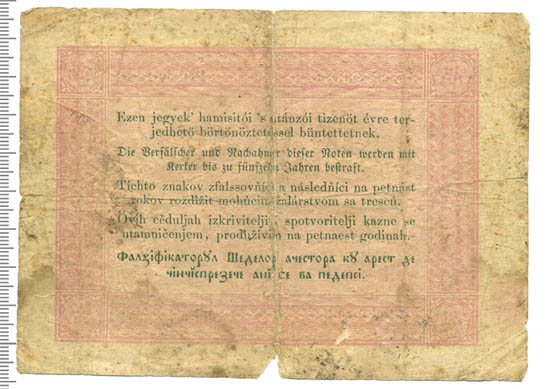 Ezen jegyek' hamisitói 's utánzói tizenöt évre ter-
jedhető börtönöztetéssel büntettetnek.
Die Verfälscher und Nachahmer dieser Noten werden mit
Kerker bis zu fünfzehn Jahren bestraft.
Tichto znakov zfalssovňíci a následňíci na petnást
rokov rozdlžit mohúcim žalárstvom sa trescú.
Ovih cěduljah izkrivitelji, spotvoritelji kazne se
utamničenjem, produživim na petnaest godinah.
Фалсіфікаторул Шеделор ачестора кꙋ арест де
чінчіспрезече ані се ва педепсі.